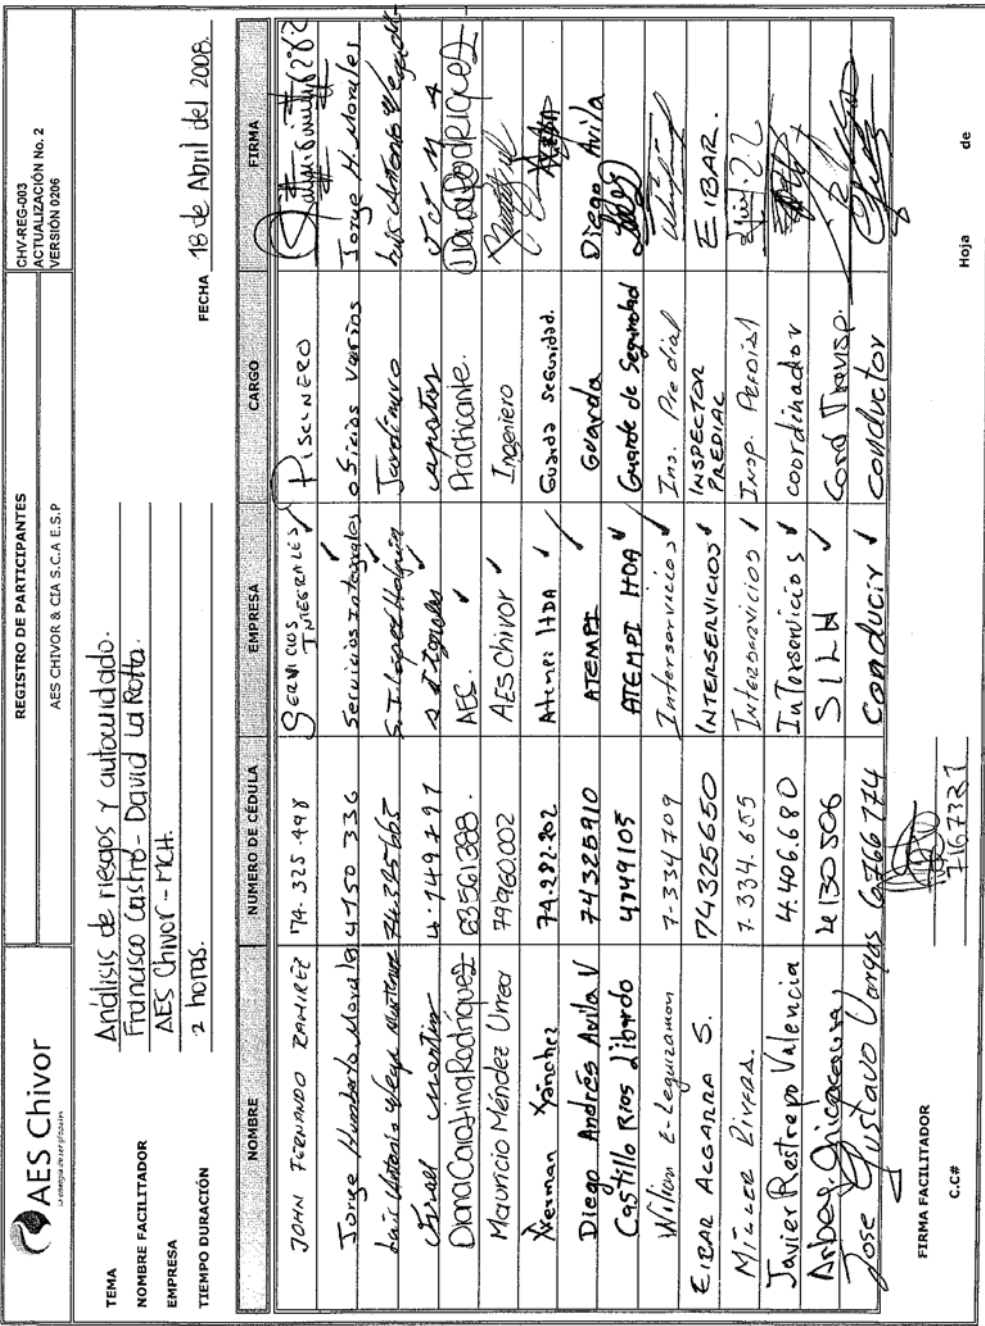 AES Chivor
REGISTRO DE PARTICIPANTES
AES CHIVOR & CIA S.C.A E.S.P
CHV-REG-003
ACTUALIZACIÓN No. 2
VERSIÓN 0206
TEMA Análisis de riesgos y autocuidado.
NOMBRE FACILITADOR Francisco Castro - David La Rotta.
EMPRESA AES Chivor - MCH.
TIEMPO DURACIÓN 2 horas.
FECHA 18 de Abril del 2008.
NOMBRE NUMERO DE CÉDULA EMPRESA CARGO FIRMA
JOHN FERNANDO RAMIREZ 74.325.498 SERVICIOS INTEGRALES PISCINERO
Jorge Humberto Morales 4150 336 Servicios Integrales oficios varios Jorge H. Morales
Luis Antonio Vega 74.325665 Jardinero Luis Antonio Vega
Israel 4.149797
Diana Carolina Rodríguez 63561388. AEC. Practicante. Diana Rodriguez
Mauricio Méndez Urrea 79960.002 AES Chivor Ingeniero
Xerman Xánchez 74.282.202 Atempi ltDA Guarda Seguridad.
Diego Andrés Avila V 74325910 ATEMPI Guarda Diego Avila
Castillo Rios Libardo 4949105 ATEMPI ltDA Guarda de Seguridad
Wilian E. Leguizamon 7.334709 Interservicios Ins. Predial
EIBAR ALGARRA S. 74325650 INTERSERVICIOS INSPECTOR PREDIAL EIBAR.
MILLER RIVERA. 7.334.655 INTERSERVICIOS Insp. PREDIAL
Javier Restrepo Valencia 4.406.680 InTerservicios coordinador
4130506 SILH Cord Transp.
Jose Gustavo Vargas 6766774 Conducir conductor
FIRMA FACILITADOR
C.C# 7167321
Hoja de